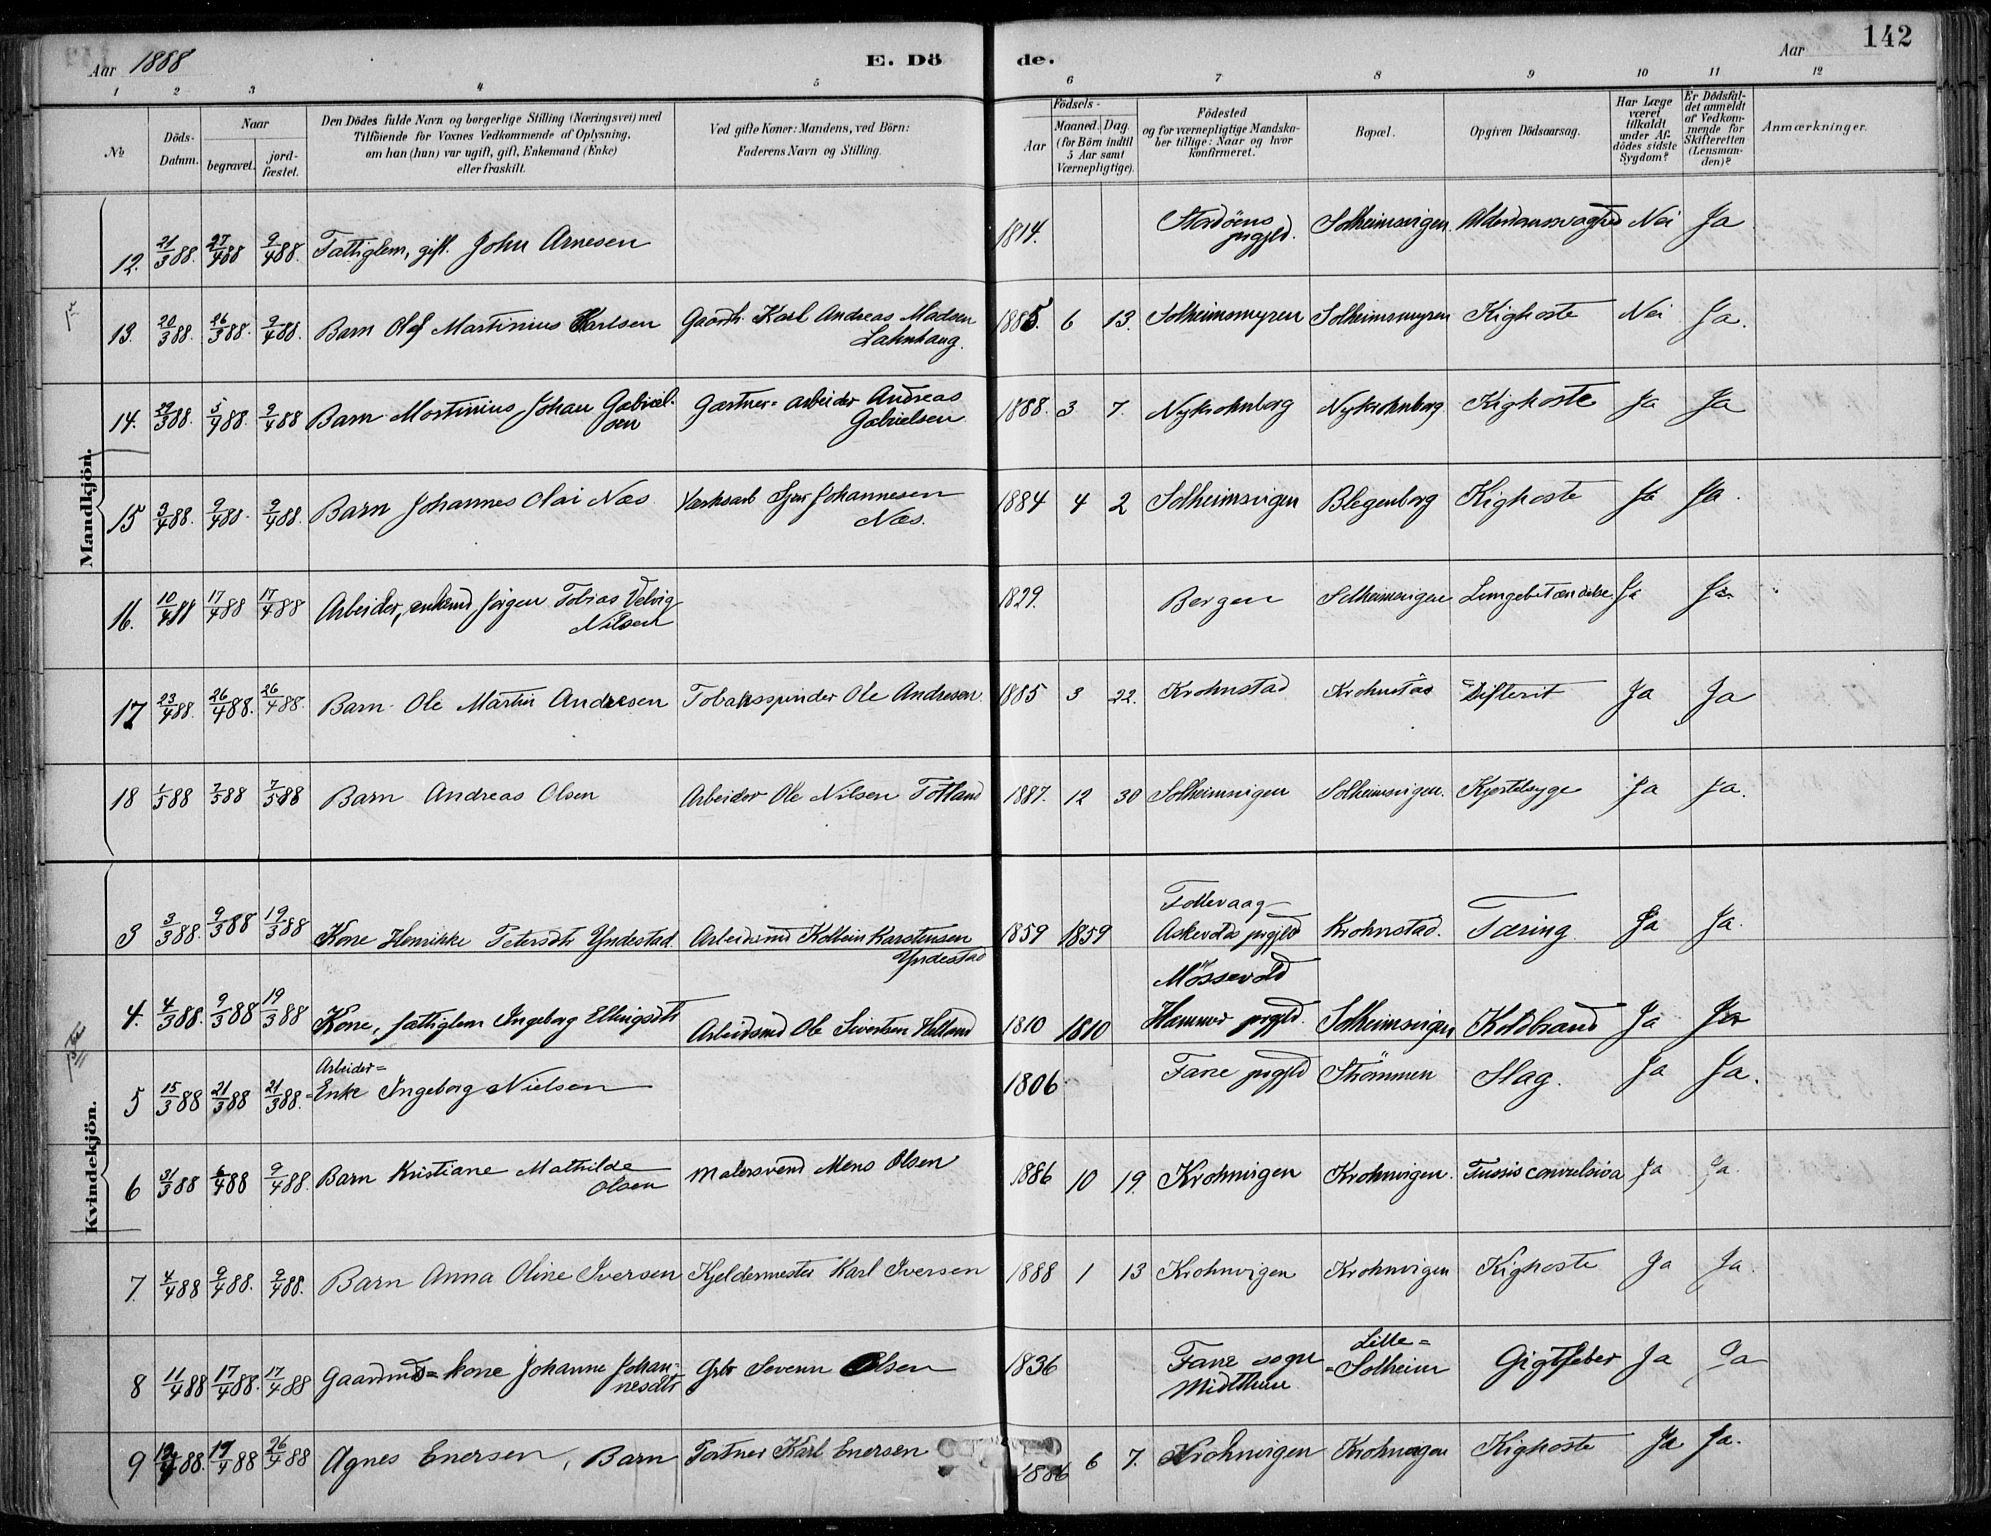 Aar 1888
E. Dö
de.
Aar
142
1 2 3 4 5 6 7 8 9 10 11 12
No
Döds-Datum.
Naar
begravet.
jord-fæstet.
Den Dödes fulde Navn og borgerlige Stilling (Næringsvei) med
Tilföiende for Voxnes Vedkommende af Oplysning,
om han (hun) var ugift, gift, Enkemand (Enke)
eller fraskilt.
Ved gifte Koner: Mandens, ved Börn:
Faderens Navn og Stilling.
Födsels-
Aar
Maaned. Dag.
(for Börn indtil
5 Aar samt
Værnepligtige).
Födested
og for værnepligtige Mandska-
ber tillige: Naar og hvor
konfirmeret.
Bopæl.
Opgiven Dödsaarsag.
Har Læge
været
tilkaldt
under Af-
dödes sidste
Sygdom?
Er Dödsfal-
det anmeldt
af Vedkom-
mende for
Skifteretten
(Lensman-
den)?
Anmærkninger.
Mandkjön.
12. 21/3 88. 27/4 88 9/4 88. Fattiglem, gift. John Arnesen 1814. Stordöens prgjld. Solheimsvigen. Alderdomssvaghed Nei Ja
13. 20/3 88. 26/3 88. 9/4 88. Barn Olaf Martinius Karlsen Gaardb. Karl Andreas Madsen 1885. 6 13. Solheimsmyren Solheimsmyren Kighoste Nei Ja.
14. 29/3 88. 5/4 88. 9/4 88 Barn Martinius Johan Gabriel-
sen Gartner-arbeider Andreas
Gabrielsen 1888. 3 7. Nykrohnborg Nykrohnborg Kighoste Ja Ja
15 3/4 88. 9/4 88. 9/4 88. Barn Johannes Olai Næs Værksarb Sjur Johannesen
Næs. 1884 4 2 Solheimsvigen Blegenborg Kighoste Ja Ja.
16. 10/4 88 17/4 88 17/4 88 Arbeider, enkemd Jörgen Tobias Velvig
Nilsen 1829. Bergen Solheimsvigen Lungebetændelse Ja Ja.
17 23/4 88. 26/4 88. 26/4 88. Barn Ole Martin Andresen Tobaksspinder Ole Andresen. 1885 3 22. Krohnstad Krohnstad Difterit Ja Ja
18 1/5 88 7/5 88 7/5 88 Barn Andreas Olsen Arbeider Ole Nilsen Totland 1887. 12 30 Solheimsvigen Solheimsvigen. Kjertelsyge Ja Ja.
Kvindekjön.
3 3/3 88. 9/3 88 19/3 88 Kone Henrikke Petersdtr Yndestad Arbeidsmd Kolbein Karstensen
Yndestad 1859 1859 Askevold prgjld Krohnstad. Tæring Ja Ja.
4. 4/3 88. 9/3 88 19/3 88 Kone, fattiglem Ingeborg Ellingsdtr Arbeidsmd Ole Sivertsen Helland 1810 1810 Hammer prgjld. Solheimsvigen Koldbrand Ja Ja
5 15/3 88 21/3 88 21/3 88. Arbeider-
Enke Ingeborg Nielsen 1806 Fane prgjld Strömmen Slag. Ja Ja.
6 31/3 88 6/4 88 9/4 88. Barn Kristiane Mathilde
Olsen Malersvend Mons Olsen 1886 10 19. Krohnvigen Krohnvigen. Tussis convulsiva Ja Ja.
7. 4/4 88 9/4 88. 9/4 88. Barn Anna Oline Iversen Kjeldermester Karl Iversen 1888 1 13 Krohnvigen Krohnvigen Kighoste Ja Ja.
8 11/4 88 17/4 88. 17/4 88 Gaardmds-kone Johanne Johan-
nesdtr Gbr Severin Olsen 1836 Fane sogn
Midtthun Lille-
Solheim Gigtfeber Ja Ja
9 12/4 88. 17/4 88 26/4 88 Agnes Enersen, Barn Portner Karl Enersen 1886 6 7. Krohnvigen Krohnvigen Kighoste Ja Ja.